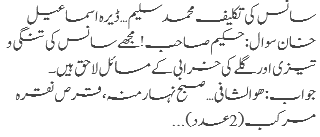 سانس کی تکلیف محمد سلیم...ڈیرہ اسماعیل
خان سوال: حکیم صاحب! مجھے سانس کی تنگی و
تیزی اور گلے کی خرابی کے مسائل لاحق ہیں۔
جواب: ھوالشافی... صبح نہار منہ، قرص نقرہ
مرکب (2 عدد)...